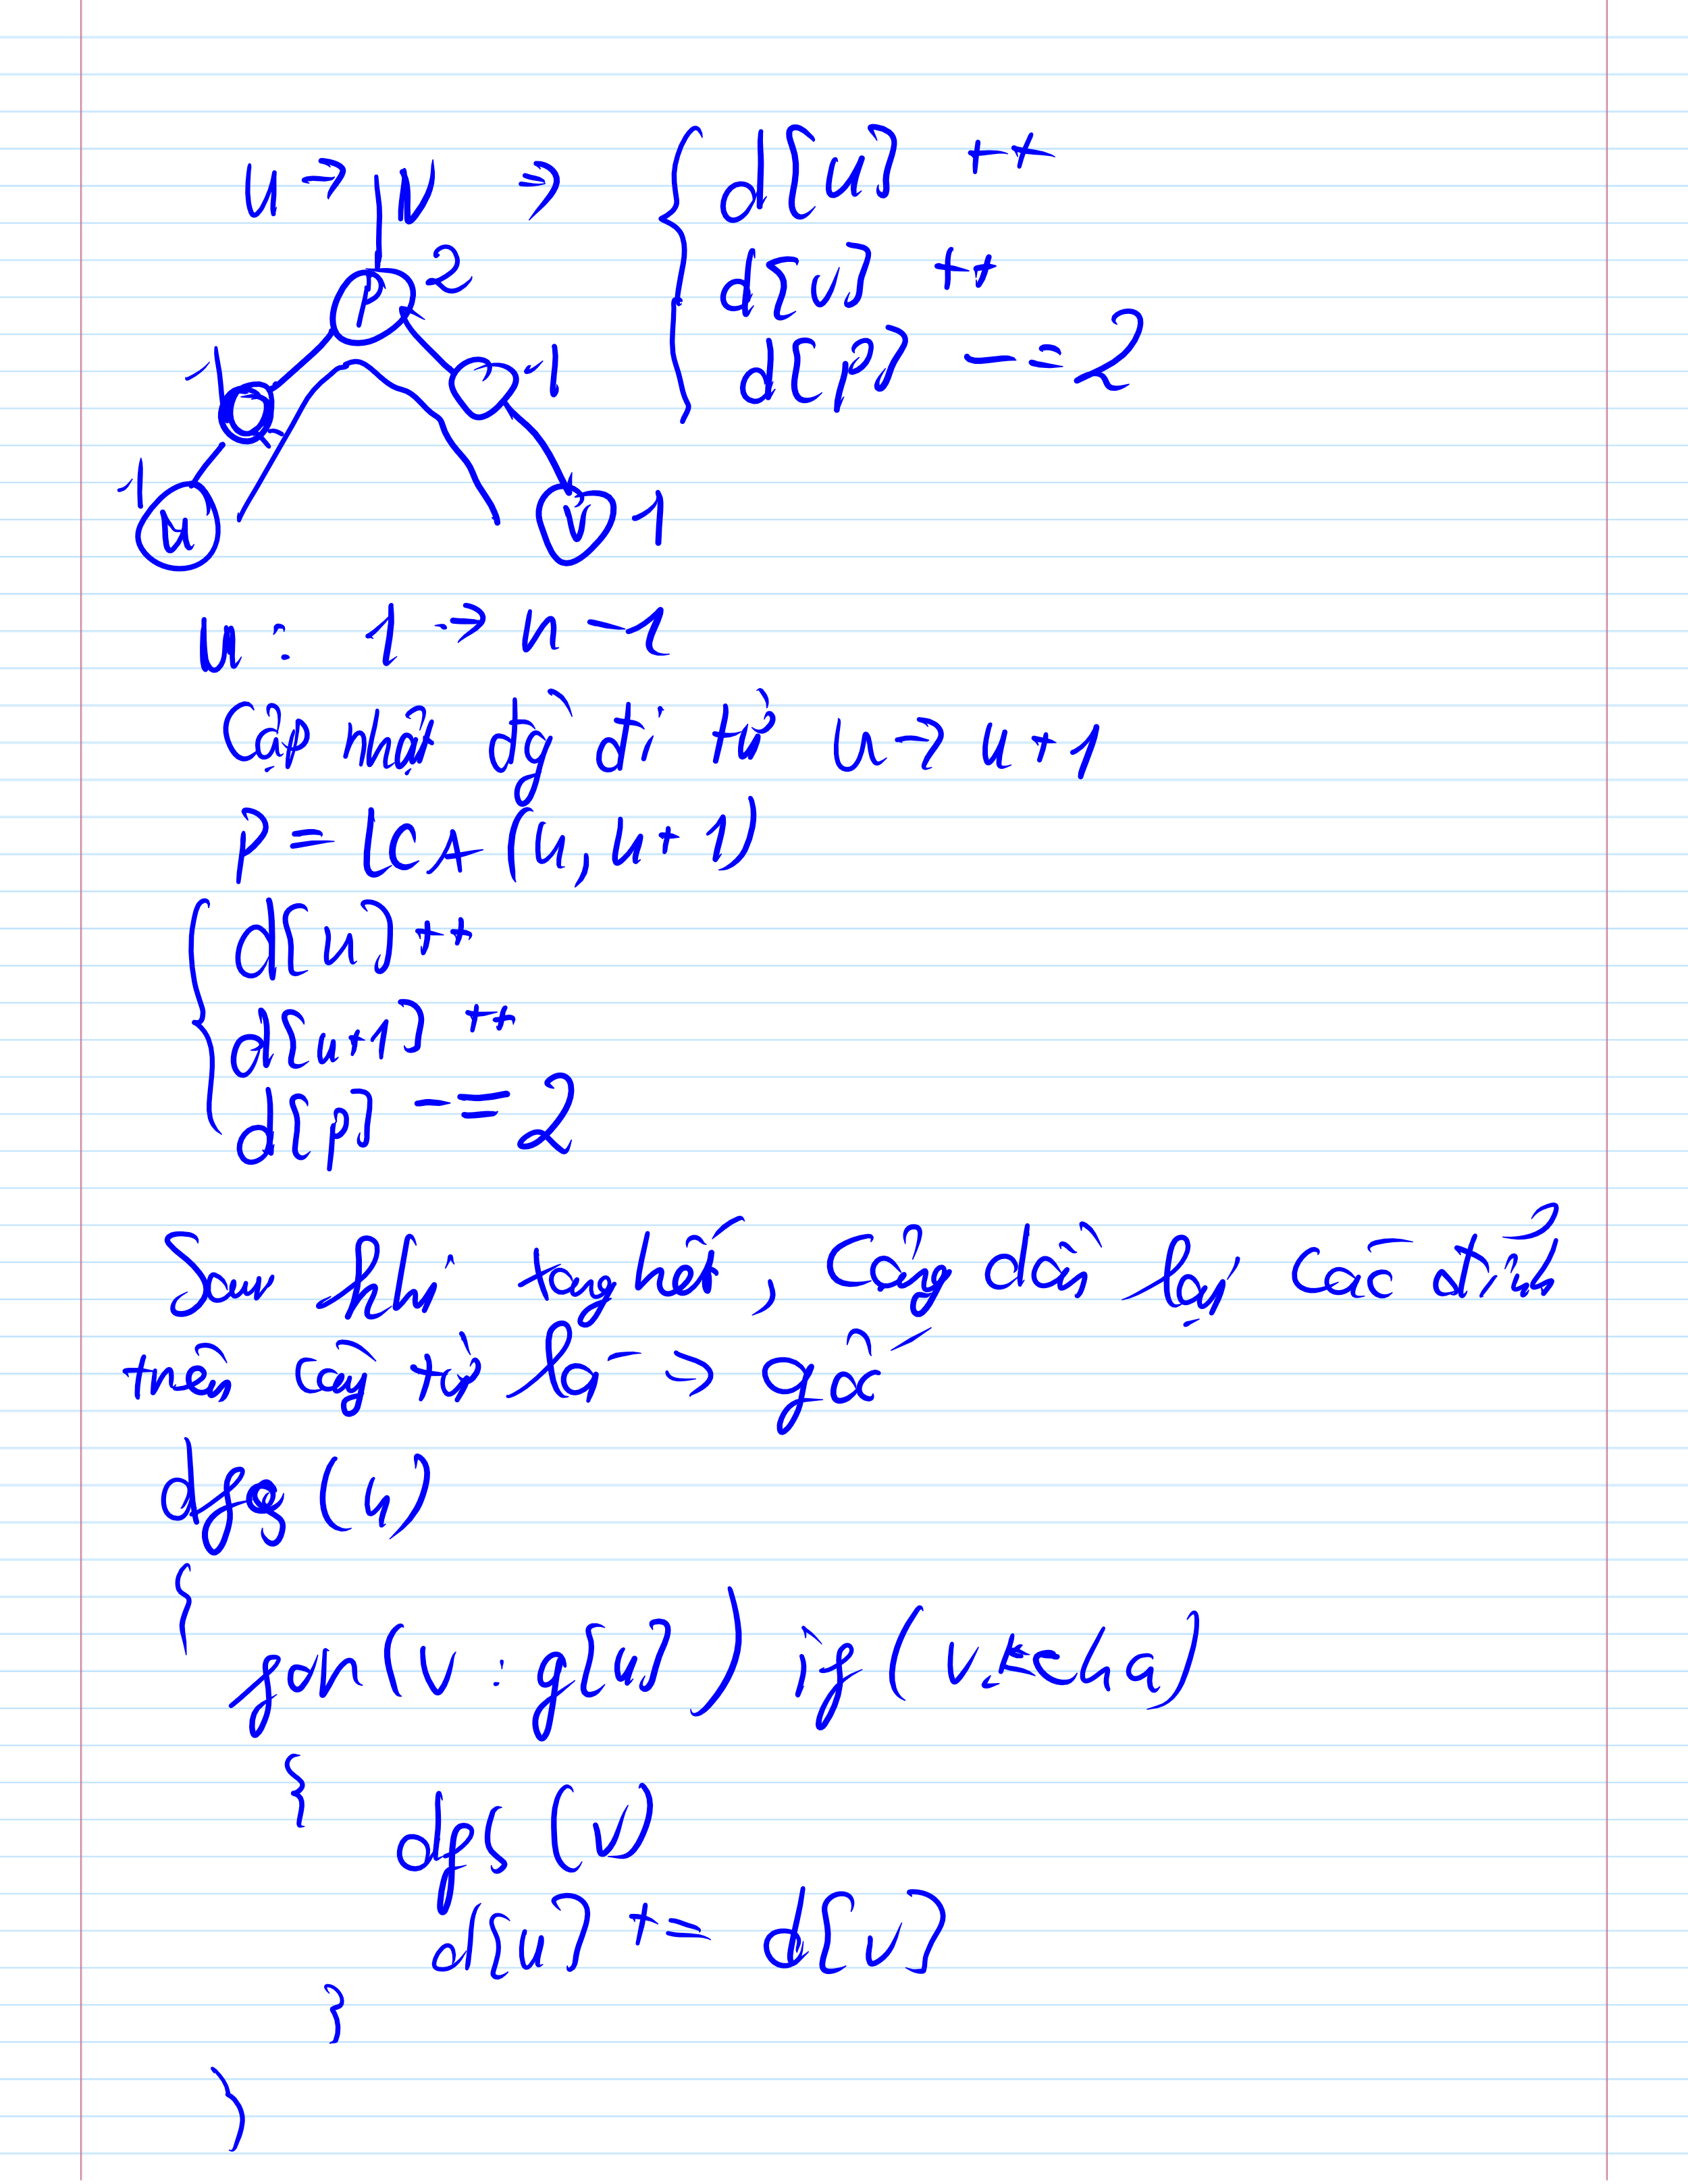 u → v ⇒ { d[u] ++
d[v] ++
d[p] -= 2
p 2
1 1
1 u v 1
u: 1 → n - 1
Cập nhật đg đi từ u → u + 1
p = LCA (u, u + 1)
{ d[u] ++
d[u+1] ++
d[p] -= 2
Sau khi tăng hết, cộng dồn lại các đỉnh
trên cây từ lá → gốc
dfs (u)
{
for (v : g[u]) if (v ≠ cha)
{
dfs (v)
d[u] += d[v]
}
}